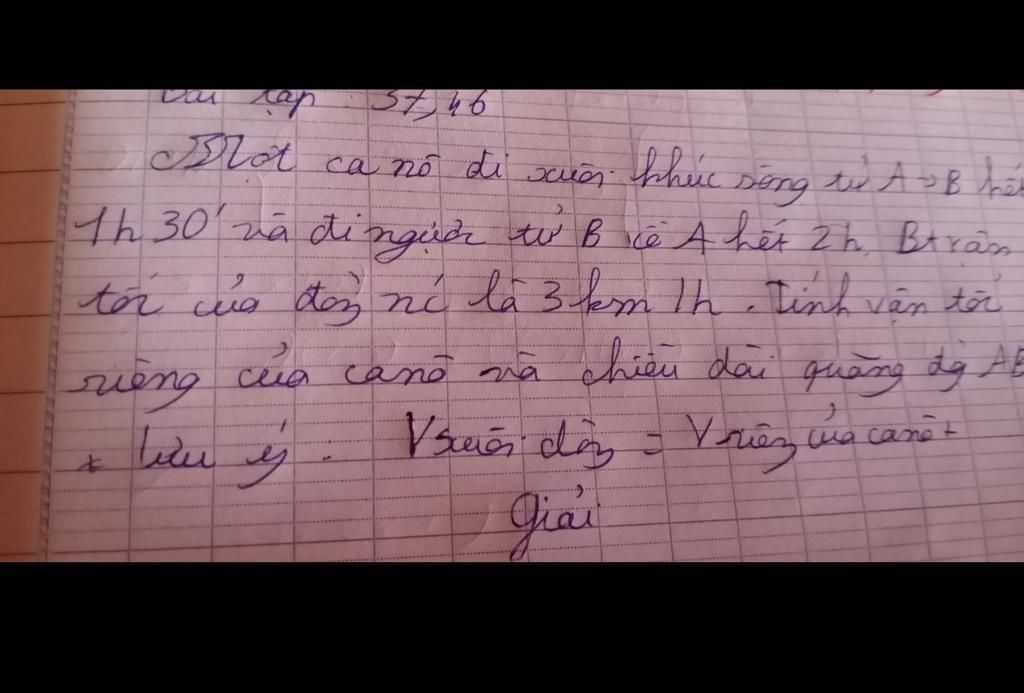 Bài tập 37, 46
Một ca nô đi xuôi khúc sông từ A → B hết
1h 30' và đi ngược từ B về A hết 2h. Bt vận
tốc của dòg nc là 3 km/h. Tính vận tốc
riêng của canô và chiều dài quãng đg AB
* Lưu ý : V xuôi dòg = V riêg của canô +
Giải